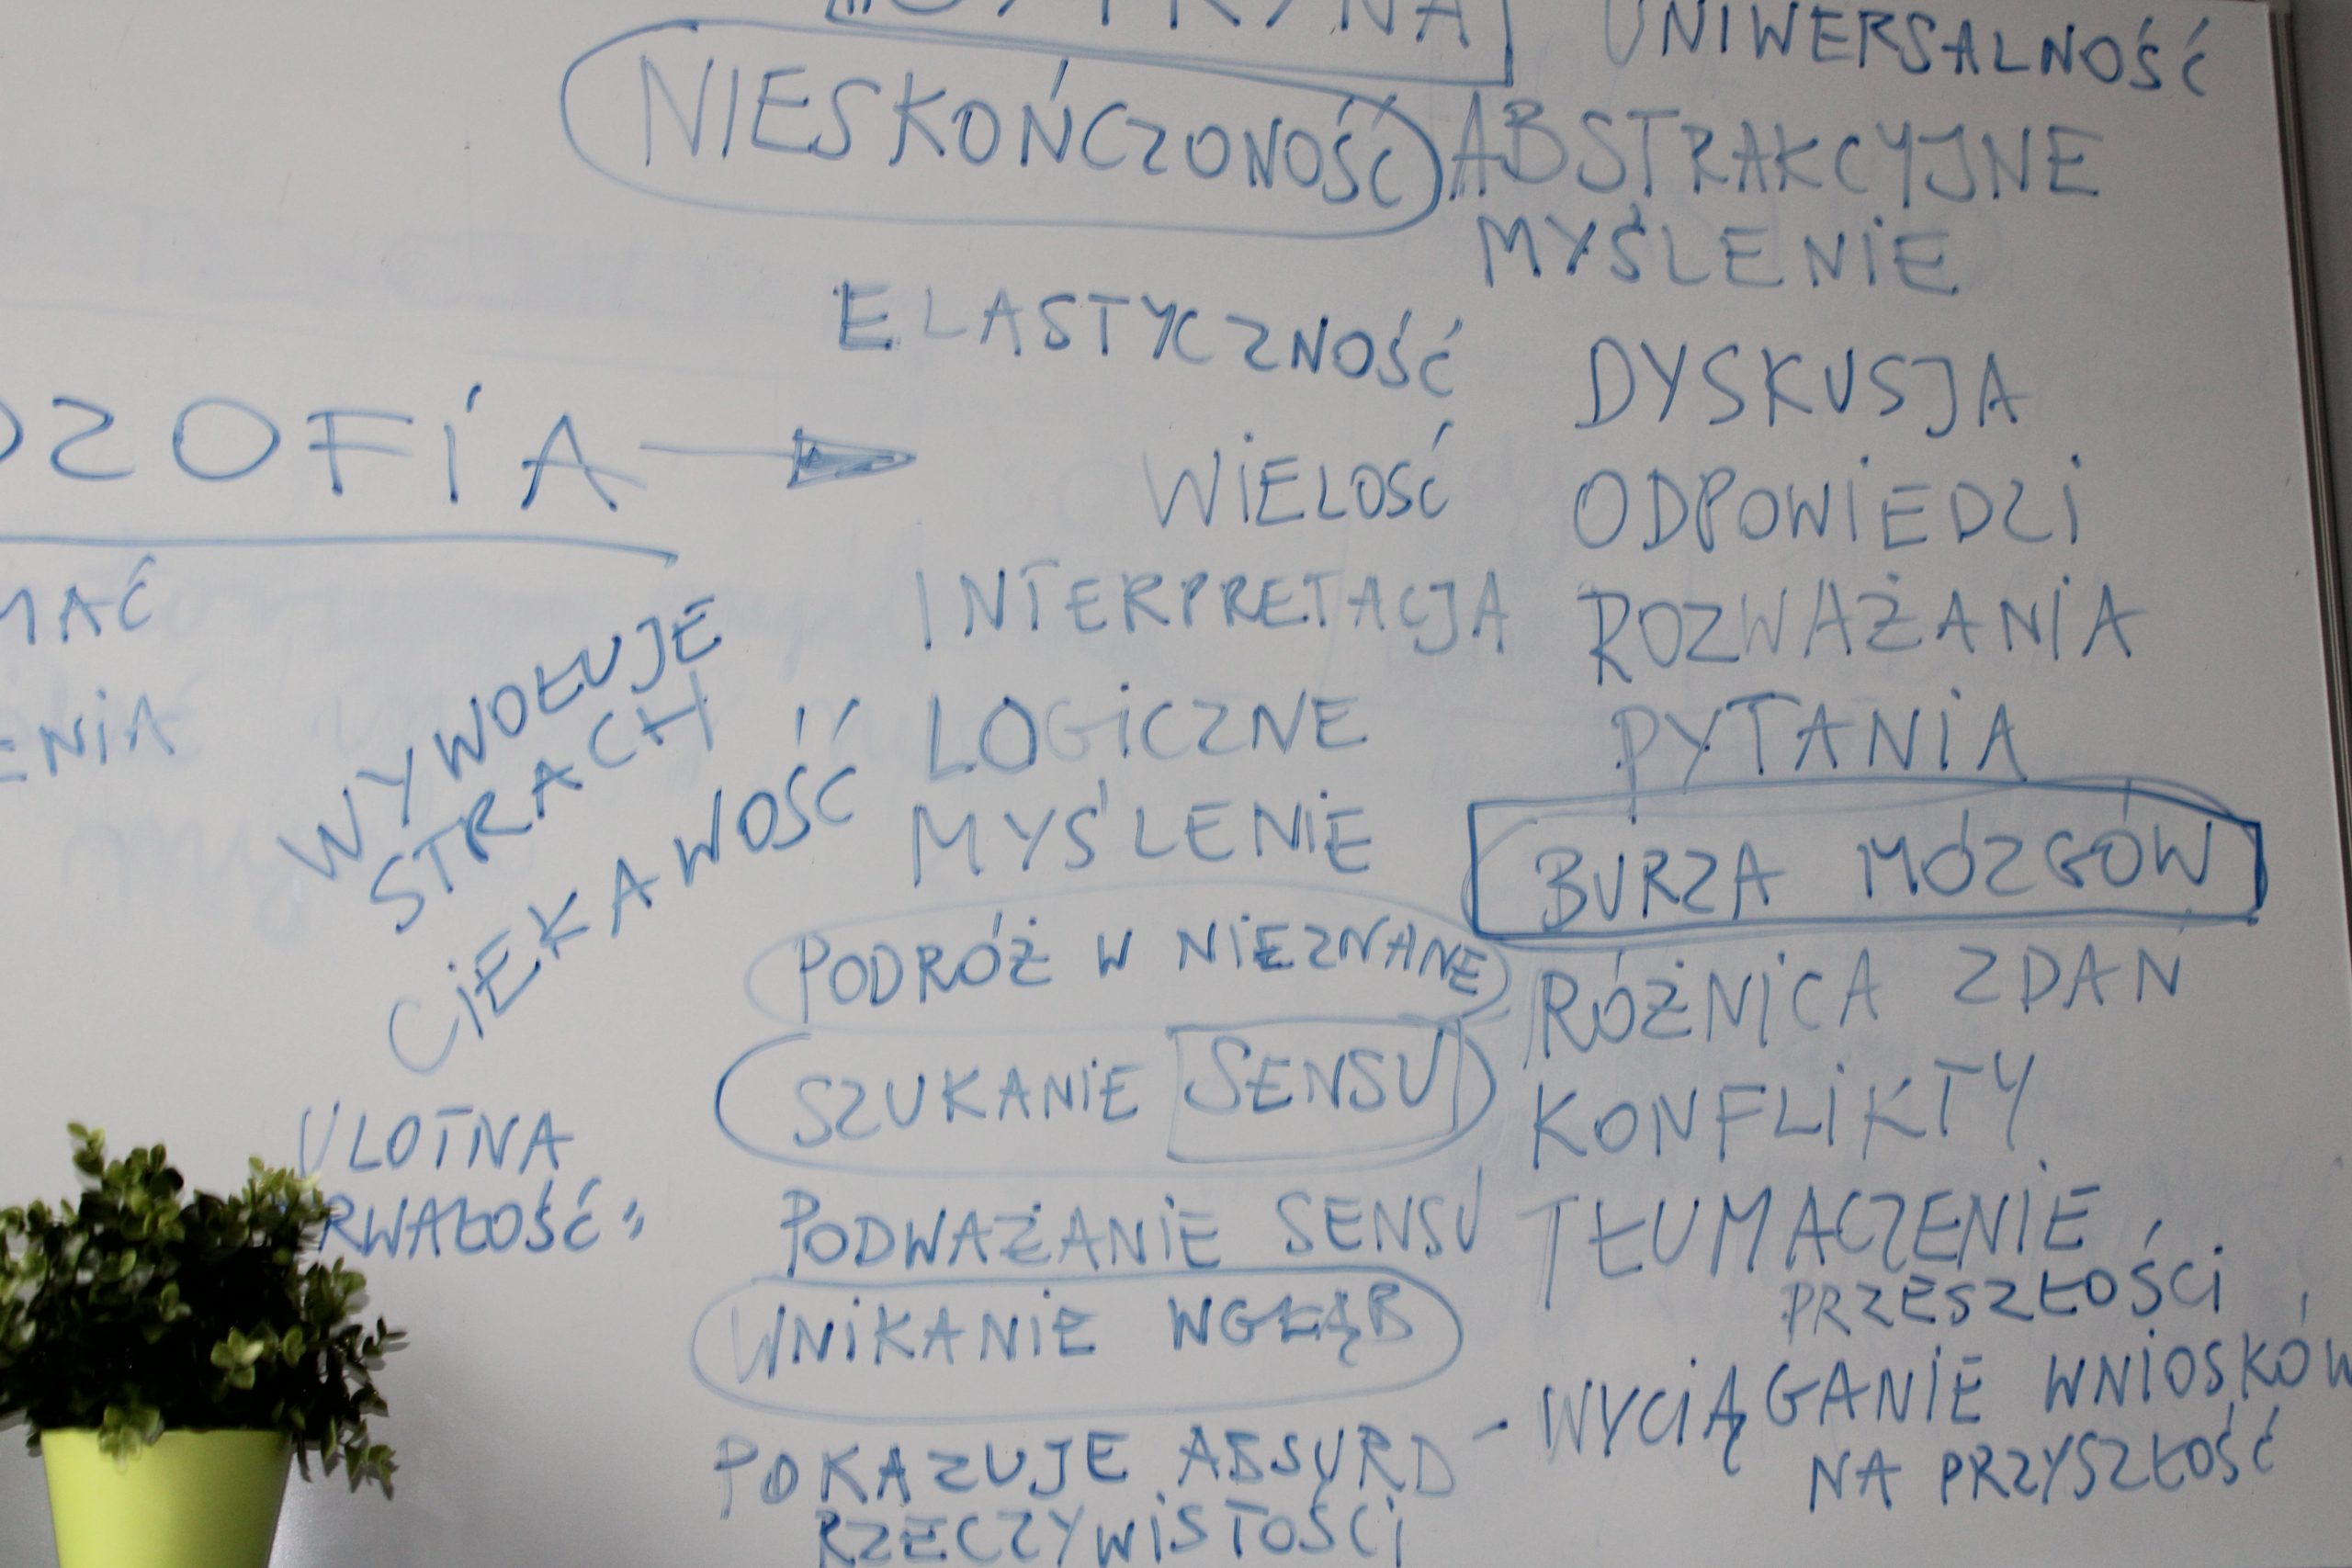 UNIWERSALNOŚĆ
NIESKOŃCZONOŚĆ
ABSTRAKCYJNE
MYŚLENIE
ELASTYCZNOŚĆ
DYSKUSJA
OZOFIA
WIELOŚĆ
ODPOWIEDZI
MAĆ
INTERPRETACJA
ROZWAŻANIA
ENIA
WYWOŁUJE
STRACH
CIEKAWOŚĆ
LOGICZNE
MYŚLENIE
PYTANIA
BURZA MÓZGÓW
PODRÓŻ W NIEZNANE
RÓŻNICA ZDAŃ
SZUKANIE SENSU
KONFLIKTY
ULOTNA
RWAŁOŚĆ
PODWAŻANIE SENSU
TŁUMACZENIE
PRZESZŁOŚCI
WNIKANIE WGŁĄB
- WYCIĄGANIE WNIOSKÓW
NA PRZYSZŁOŚĆ
POKAZUJE ABSURD
RZECZYWISTOŚCI